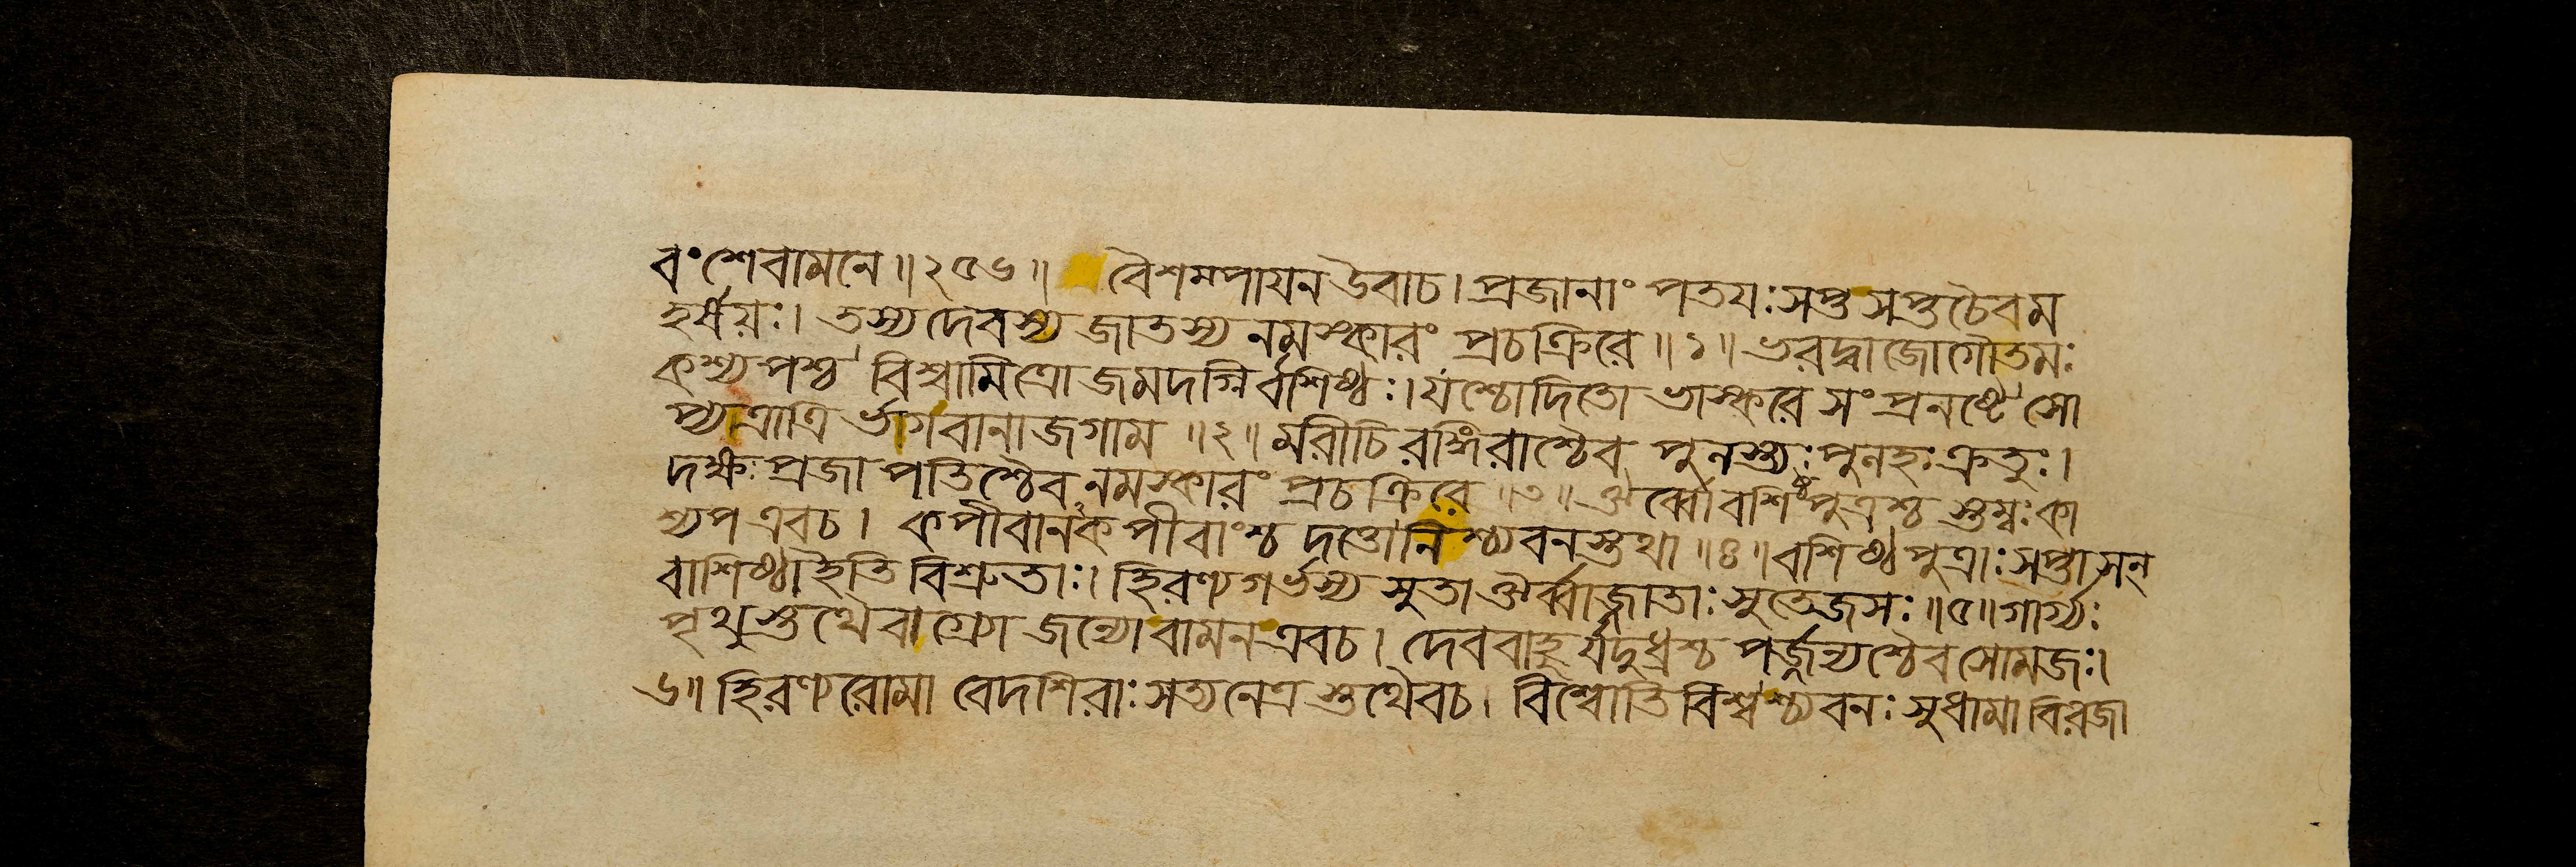 বংশেবামনে॥২৫৬॥ বৈশমপায়ন উবাচ। প্রজানাং পতয়ঃসপ্ত সপ্তচৈবম
হর্ষয়ঃ। তস্যদেবস্য জাতস্য নমস্কারং প্রচক্রিরে॥১॥ভরদ্বাজোগৌতমঃ
কশ্যপশ্চ বিশ্বামিত্রো জমদগ্নির্বশিষ্ঠঃ।যশ্চোদিতো ভাস্করে সংপ্রনষ্টে সো
প্যত্রাত্রির্ভাগবানাজগাম ॥২॥ মরীচিরঙ্গিরাশ্চৈব পুনস্ত্যঃপুনহঃক্রতুঃ।
দক্ষঃপ্রজাপতিশ্চৈব নমস্কারং প্রচক্রিরে॥৩॥ঔর্ব্বোবশিষ্ঠপুত্রশ্চ স্তম্বঃকা
শ্যপ এবচ। কপীবানকপীবাংশ্চ দত্তোনিশ্চ্যবনস্তথা॥৪॥বশিষ্ঠপুত্রাঃসপ্তাসন্
বাশিষ্ঠাইতি বিশ্রুতাঃ। হিরণ্যগর্ভস্য সুতাঔর্ব্বাজ্জাতাঃসুতেজসঃ॥৫॥গার্গ্যঃ
পৃথুস্তথৈবাগ্র্যো জন্যোবামনএবচ। দেববাহুর্যদুধ্রশ্চ পর্জ্জন্যশ্চৈবসোমজঃ।
৬॥হিরণ্যরোমা বেদশিরাঃসত্যনেত্রস্তথৈবচ। বিশ্বোতিবিশ্বশ্চ্যবনঃসুধামাবিরজা